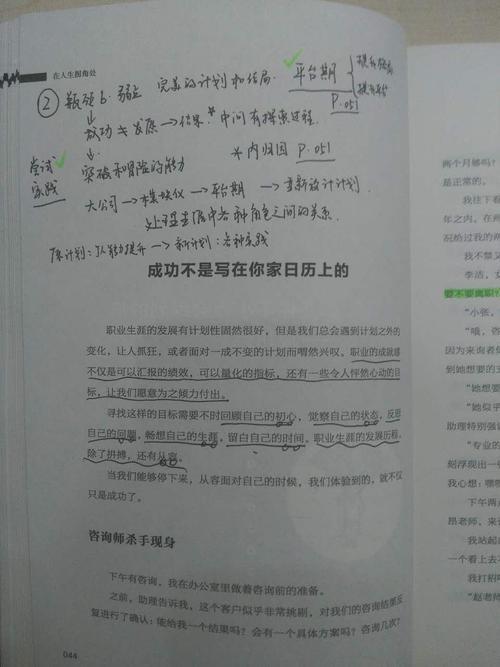 在人生拐角处
② 瓶颈 6. 弱点 完美的计划和结局. 平台期
P.051
成功 发展 → 结果. * 中间有探索过程.
尝试 突破和冒险的能力 * 内归因 P.051
实践
大公司 → 模块化 → 平台期 → 重新设计计划.
处理 各种角色之间的关系.
原计划: 从能力提升 → 新计划: 各种实践
成功不是写在你家日历上的
职业生涯的发展有计划性固然很好，但是我们总会遇到计划之外的
变化，让人抓狂，或者面对一成不变的计划而喟然兴叹。职业的成就感
不仅是可以汇报的绩效，可以量化的指标，还有一些令人怦然心动的目
标，让我们愿意为之倾力付出。
寻找这样的目标需要不时回顾自己的初心，觉察自己的状态，反思
自己的回顾，畅想自己的生涯，留白自己的时间。职业生涯的发展历程，
除了拼搏，还有从容。
当我们能够停下来，从容面对自己的时候，我们体验到的，就不仅
只是成功了。
咨询师杀手现身
下午有咨询，我在办公室里做着咨询前的准备。
之前，助理告诉我，这个客户似乎非常挑剔，对我们的咨询结果反
复进行了确认：能给我一个结果吗？会有一个具体方案吗？咨询几次？
044
两个月够吗？
是正常的。
我往下看
年之内。在两
况给过我的两
我不禁又
李洁，女
要不要离职？
“小张，
“哦，咨
因为来询者
到她想要的
“她想要
“她似乎
助理特别强调
“专业的
刻浮现出一
我心想：哪
“
昂老师，来
我站起
一个看上去
我打招呼
“赵老师